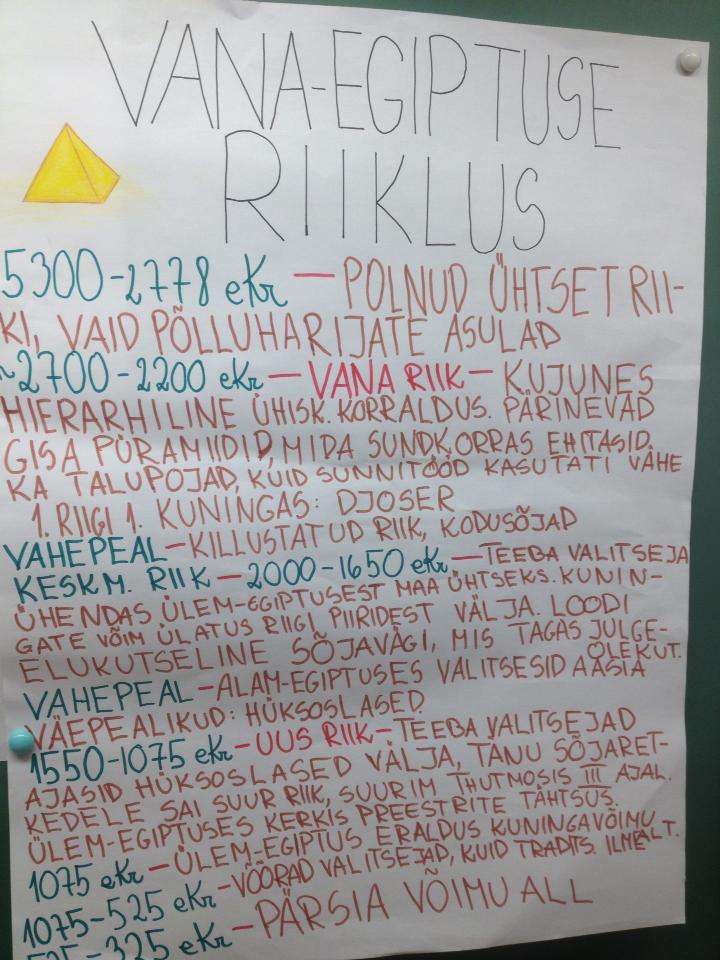 VANA-EGIPTUSE
RIIKLUS
5300-2778 eKr — POLNUD ÜHTSET RII-
KI, VAID PÕLLUHARIJATE ASULAD
~2700-2200 eKr — VANA RIIK — KUJUNES
HIERARHILINE ÜHISK. KORRALDUS. PÄRINEVAD
GISA PÜRAMIIDID, MIDA SUNDKORRAS EHITASID
KA TALUPOJAD, KUID SUNNITÖÖD KASUTATI VÄHE
1. RIIGI 1. KUNINGAS: DJOSER
VAHEPEAL — KILLUSTATUD RIIK, KODUSÕJAD
KESKM. RIIK — 2000-1650 eKr — TEEBA VALITSEJA
ÜHENDAS ÜLEM-EGIPTUSEST MAA ÜHTSEKS. KUNIN-
GATE VÕIM ULATUS RIIGI PIIRIDEST VÄLJA. LOODI
ELUKUTSELINE SÕJAVÄGI, MIS TAGAS JULGE-
OLEKUT.
VAHEPEAL — ALAM-EGIPTUSES VALITSESID AASIA
VÄEPEALIKUD: HÜKSOSLASED
1550-1075 eKr — UUS RIIK — TEEBA VALITSEJAD
AJASID HÜKSOSLASED VÄLJA, TÄNU SÕJARET-
KEDELE SAI SUUR RIIK, SUURIM THUTMOSIS III AJAL.
ÜLEM-EGIPTUSES KERKIS PREESTRITE TÄHTSUS.
1075 eKr — ÜLEM-EGIPTUS ERALDUS KUNINGAVÕIMU
ALT.
1075-525 eKr — VÕÕRAD VALITSEJAD, KUID TRADITS. ILME
525-325 eKr — PÄRSIA VÕIMU ALL